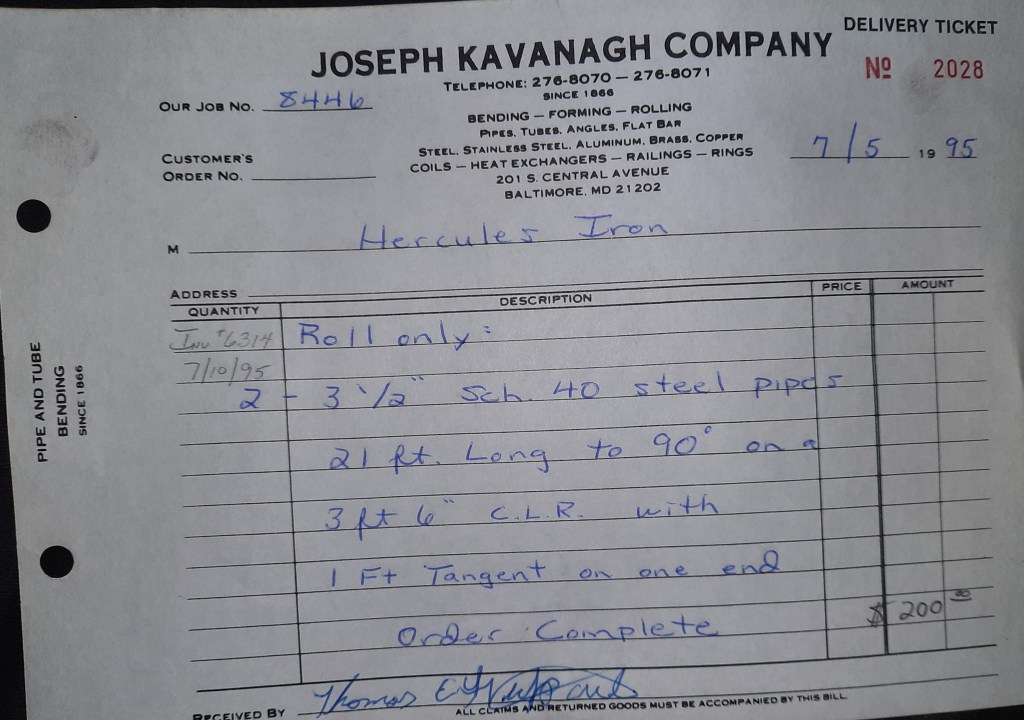 DELIVERY TICKET
JOSEPH KAVANAGH COMPANY
Nº 2028
TELEPHONE: 276-8070 — 276-8071
SINCE 1866
OUR JOB NO. 8446
BENDING — FORMING — ROLLING
PIPES, TUBES, ANGLES, FLAT BAR
STEEL, STAINLESS STEEL, ALUMINUM, BRASS, COPPER
COILS — HEAT EXCHANGERS — RAILINGS — RINGS
7/5 1995
CUSTOMER'S
ORDER NO.
201 S. CENTRAL AVENUE
BALTIMORE, MD 21202
M Hercules Iron
ADDRESS
QUANTITY DESCRIPTION PRICE AMOUNT
Inv #6314 Roll only:
7/10/95
2 - 3 1/2" Sch. 40 steel pipes
21 ft. Long to 90° on a
3 ft 6" C.L.R. with
1 Ft Tangent on one end
$ 200 00
Order Complete
RECEIVED BY Thomas E
ALL CLAIMS AND RETURNED GOODS MUST BE ACCOMPANIED BY THIS BILL
PIPE AND TUBE
BENDING
SINCE 1866